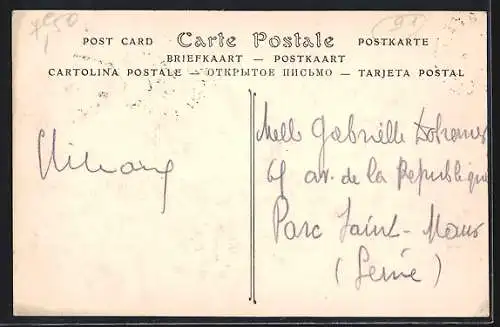 7.50
91
POST CARD Carte Postale POSTKARTE
BRIEFKAART — POSTKAART
CARTOLINA POSTALE — ОТКРЫТОЕ ПИСЬМО — TARJETA POSTAL
Melle Gabrielle
av. de la Republique
Parc Saint-Maur
(Seine)